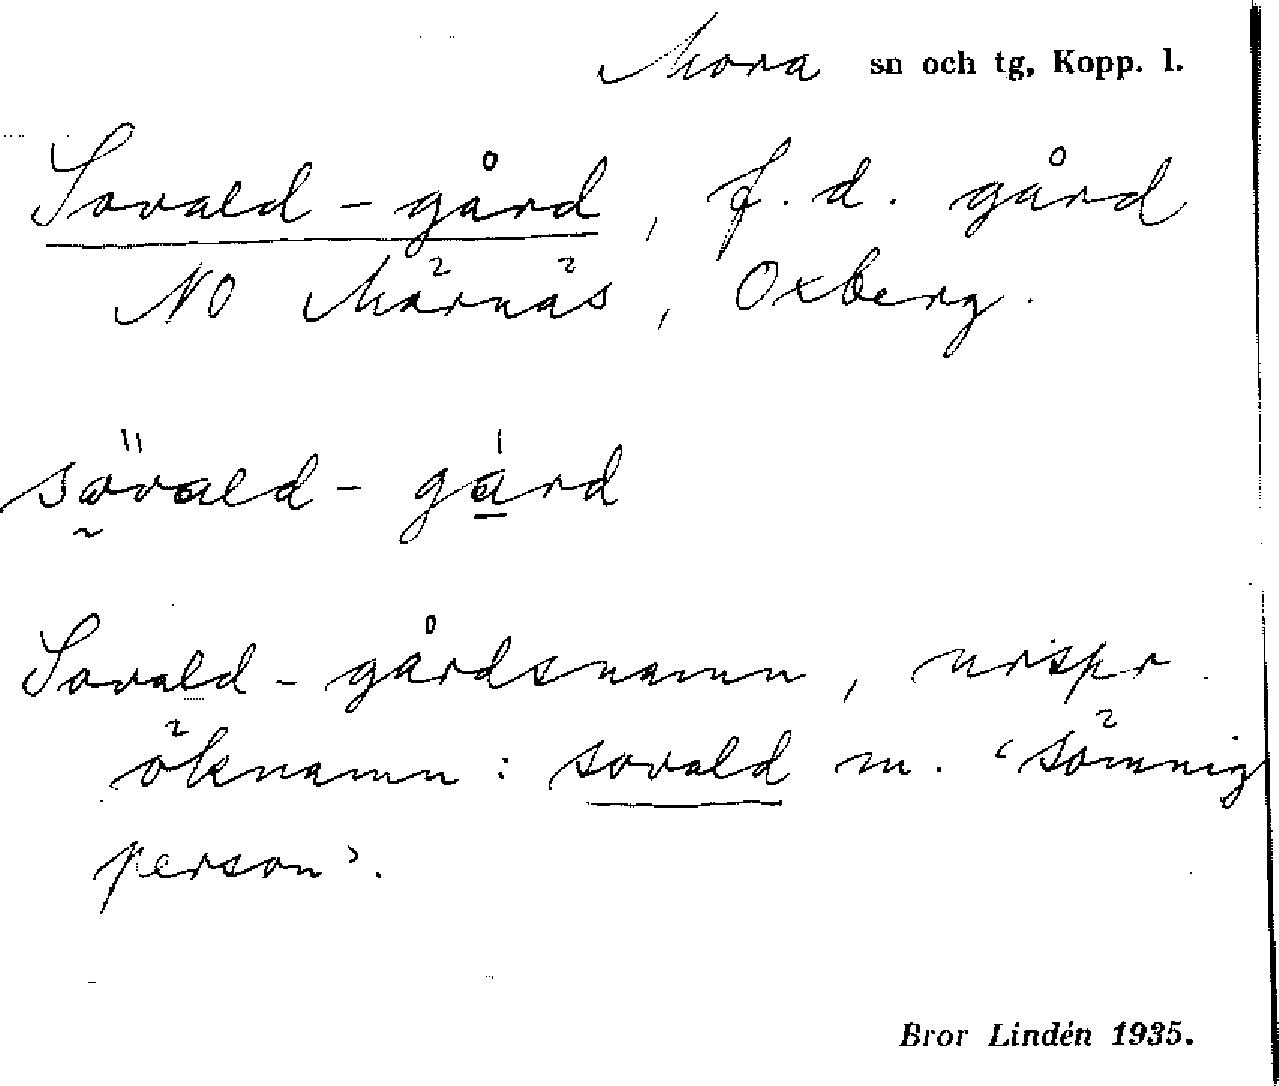 Mora sn och tg, Kopp. l.
Sovald-gård, f.d. gård
NO Märnäs, Oxberg.
sövald-gård
Sovald-gårdsnamn, urspr.
öknamn: sovald m. ‘sömnig
person’.
Bror Lindén 1935.